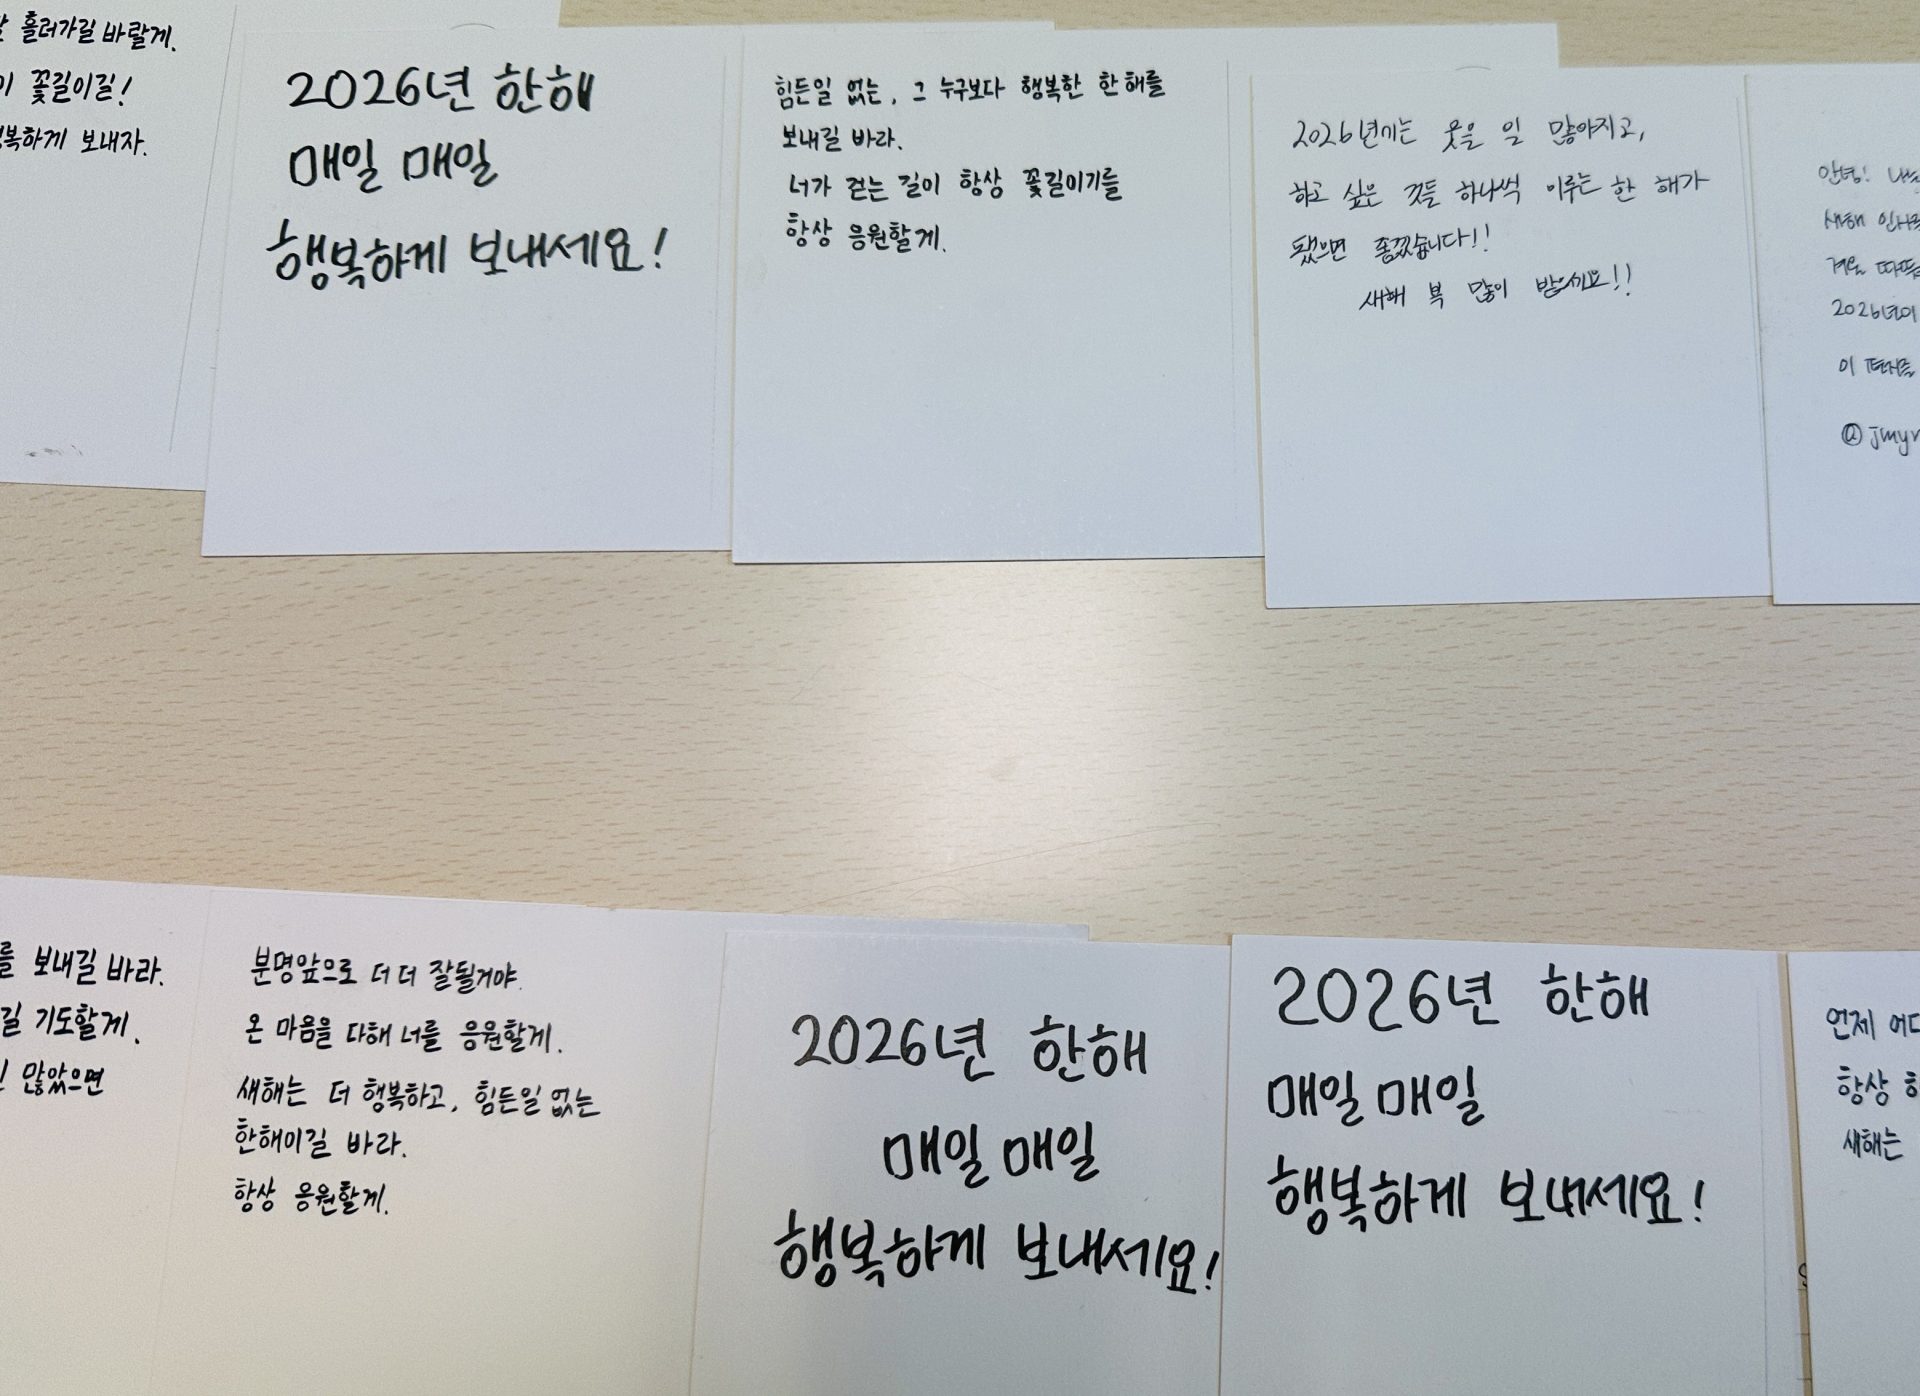 흘러가길 바랄게.
꽃길이길!
행복하게 보내자.
2026년 한해
매일 매일
행복하게 보내세요!
힘든일 없는, 그 누구보다 행복한 한해를
보내길 바라.
너가 걷는 길이 항상 꽃길이기를
항상 응원할게.
2026년에는 웃을 일 많아지고,
하고 싶은 것들 하나씩 이루는 한 해가
됐으면 좋겠습니다!!
새해 복 많이 받으세요!!
안녕!
새해
겨울
2026년이
이
@jmy
를 보내길 바라.
길 기도할게.
많았으면
분명앞으로 더 더 잘될거야.
온 마음을 다해 너를 응원할게.
새해는 더 행복하고, 힘든일 없는
한해이길 바라.
항상 응원할게.
2026년 한해
매일 매일
행복하게 보내세요!
2026년 한해
매일 매일
행복하게 보내세요!
언제
항상
새해는